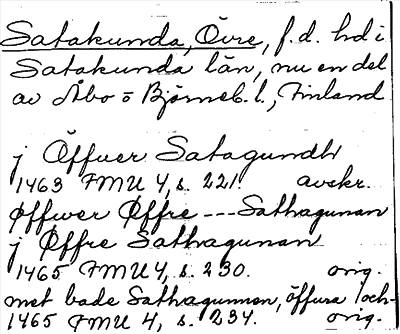 Satakunda, Övre, f.d. hd i
Satakunda län, nu en del
av Åbo o Björneb. l., Finland
j Öffuer Satagundh
1463 FMU 4, s. 221. avskr.
Øffwer Øffre --- Sathagunan
j Øffre Sathagunan
1465 FMU 4, s. 230. orig.
met bade Sathagunnen, öffura och
1465 FMU 4, s. 234. orig.